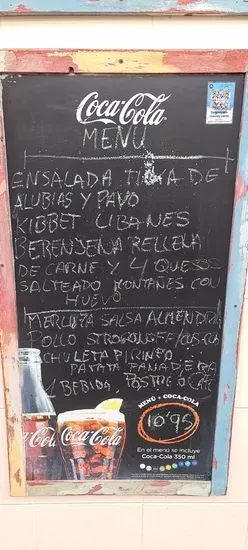 Coca-Cola
MENU
ENSALADA TIBIA DE
ALUBIAS Y PAVO
KIBBET LIBANES
BERENJENA RELLENA
DE CARNE Y 4 QUESOS
SALTEADO MONTAÑES CON
HUEVO
MERLUZA SALSA ALMENDRA
POLLO STROGONOFF
CHULETA PIRINEO
PATATA PANADERA
1 BEBIDA, POSTRE O CAFE
MENÚ + COCA-COLA
10'95
En el menú se incluye
Coca-Cola 350 ml
Coca-Cola
Coca-Cola